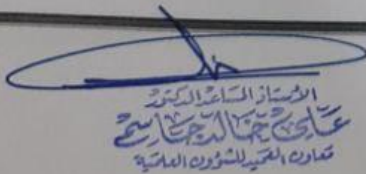 الأستاذ المساعد الدكتور
علي خالد جاسم
معاون العميد للشؤون العلمية